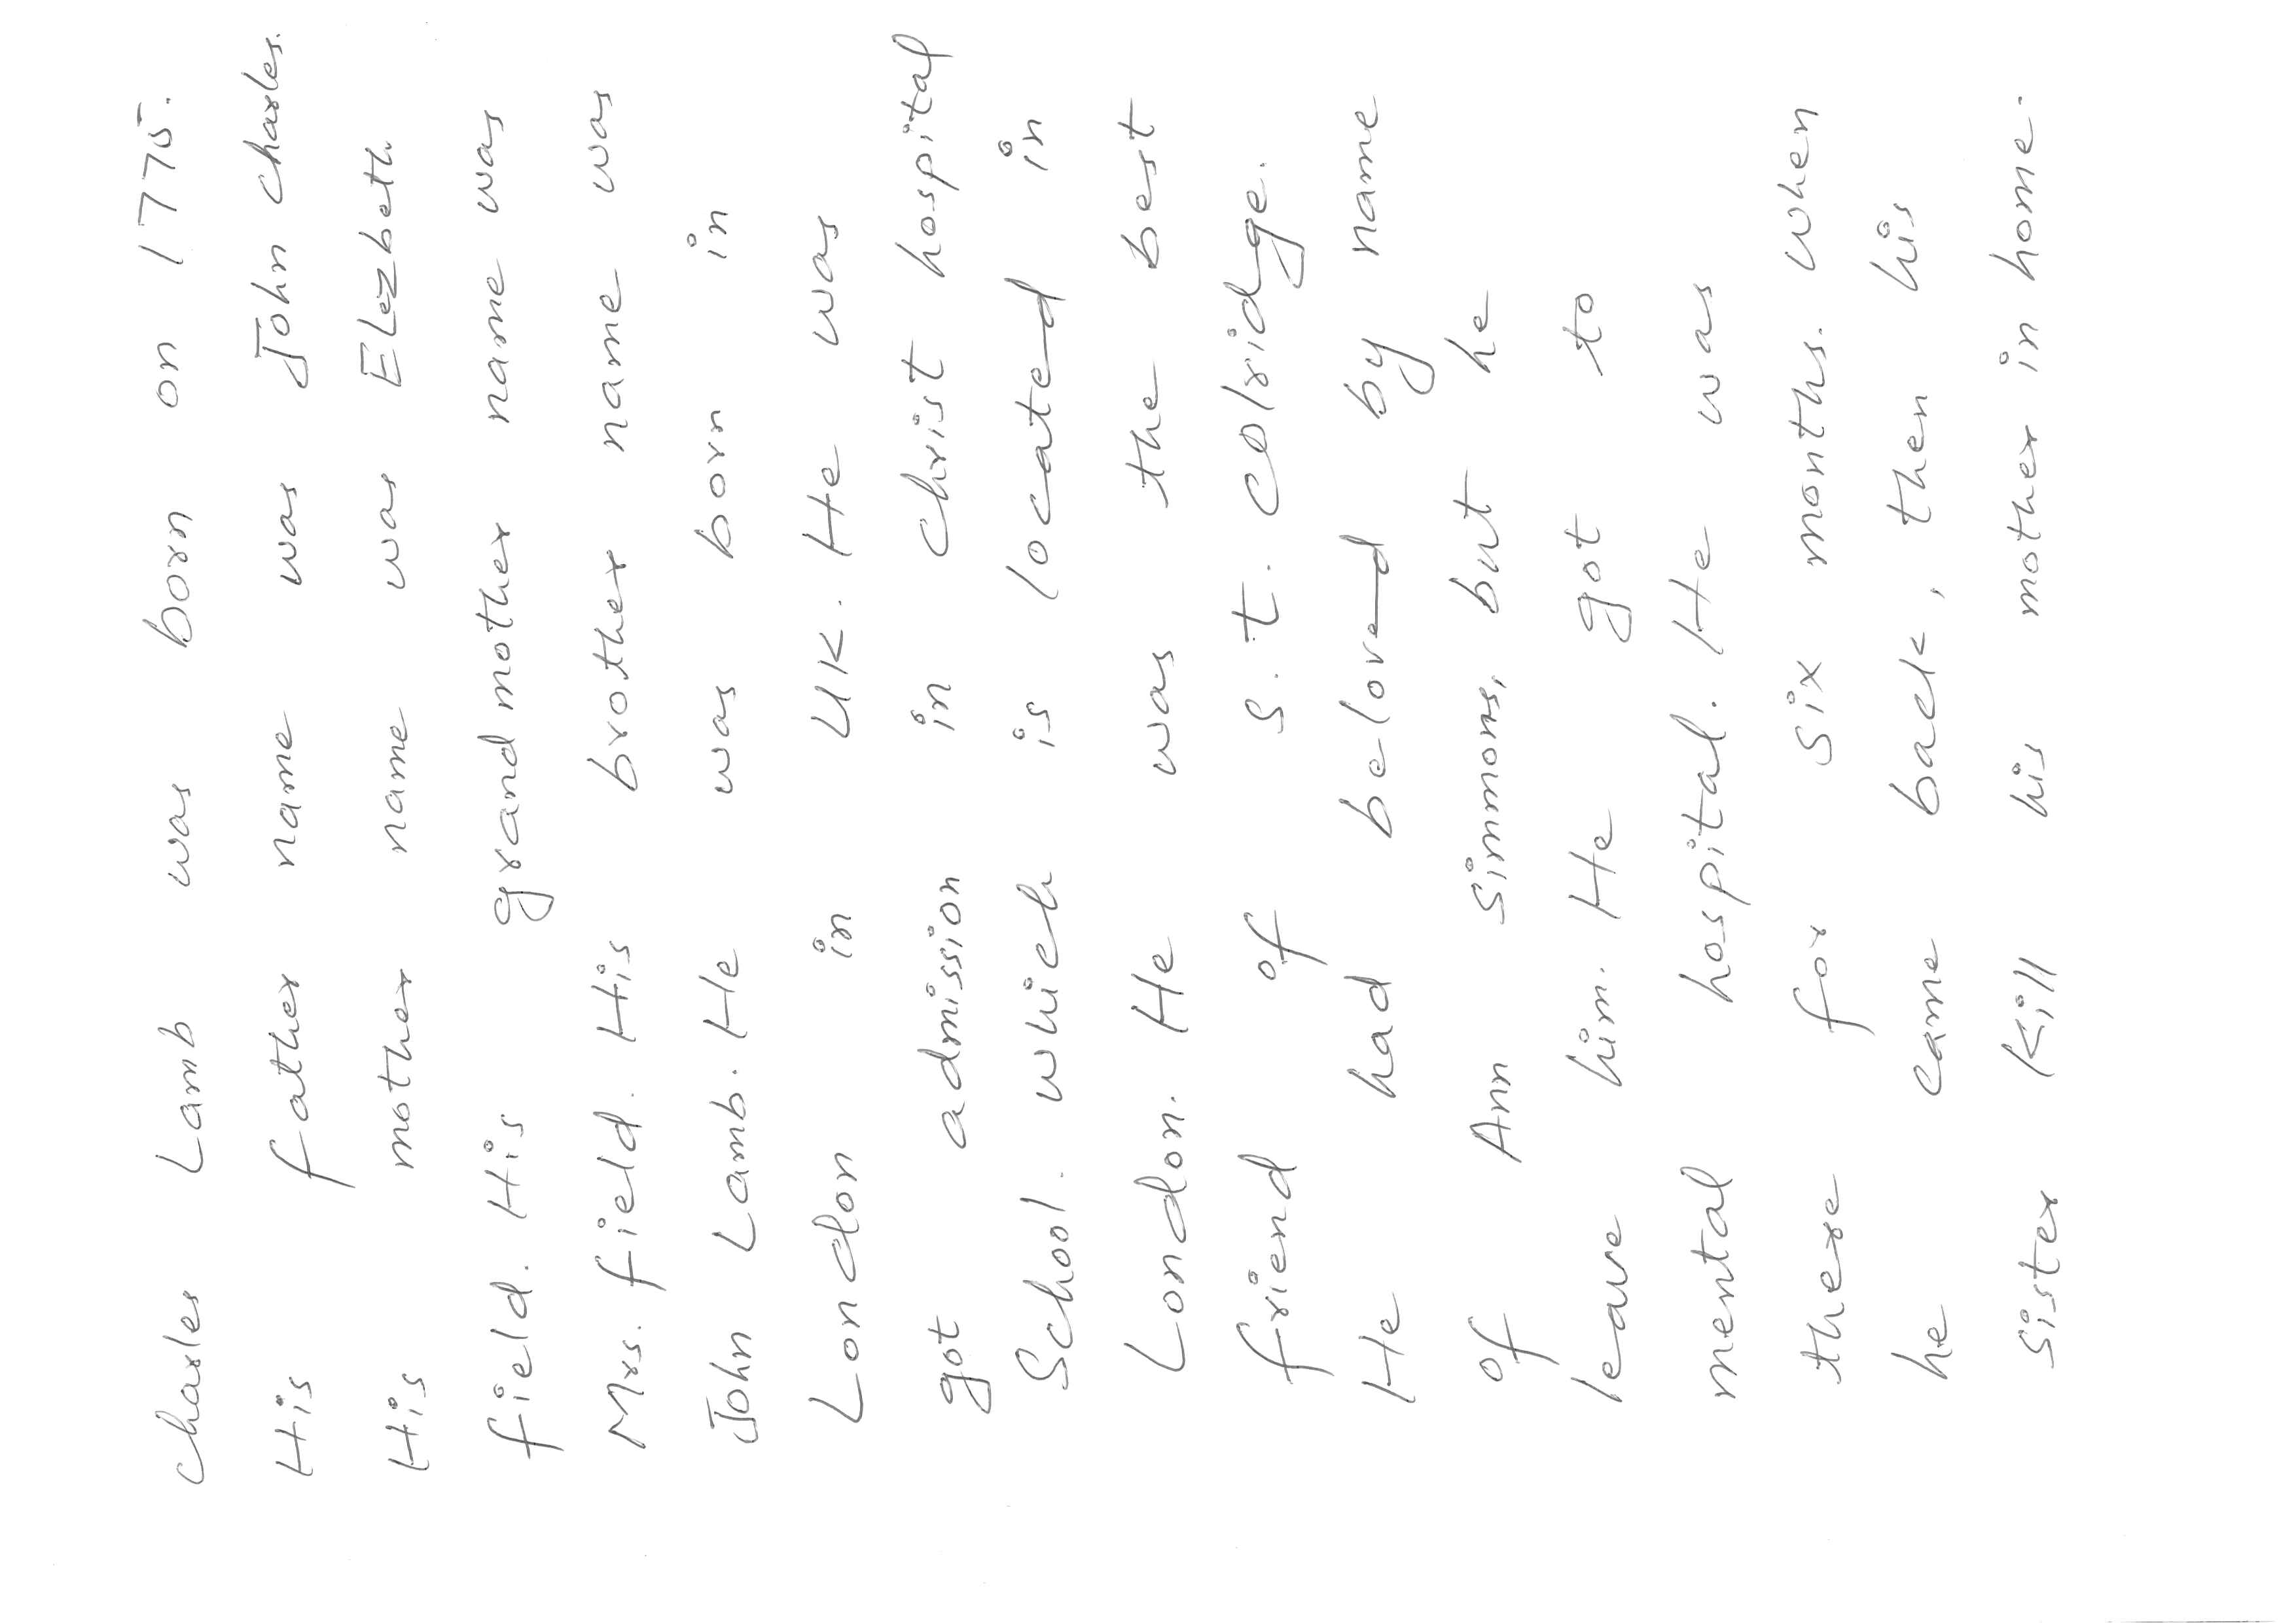 Charles Lamb was born on 1775.
His father name was John Charles.
His mother name was Elezbeth
field. His grandmother name was
Mrs. field. His brother name was
John Lamb. He was born in
London in UK. He was
got admission in Christ hospital
School. which is located in
London. He was the best
friend of S. t. Colridge.
He had beloved by name
of Ann Simmons, but he
leave him. He got to
mental hospital. He was
there for six months. When
he came back, then his
sister kill his mother in home.